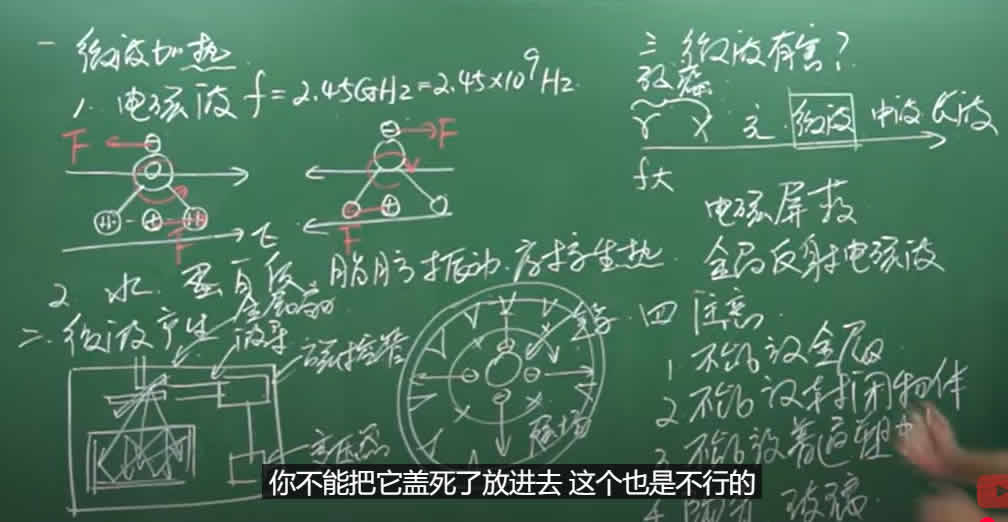 一 微波加热
1. 电磁波 f=2.45GHz=2.45×10⁹Hz
F
F
F
F
E
2 水. 蛋白质. 脂肪 振动.摩擦生热
二. 微波产生
金属扇
波导
磁控管
高压
磁场
三 微波有害?
放疗
γ X 可 微波 中波 长波
f大
电磁屏蔽
金属反射电磁波
四 注意.
1 不能放金属
2 不能放封闭物体
3 不能放普通塑
4 陶瓷 玻璃
你不能把它盖死了放进去 这个也是不行的